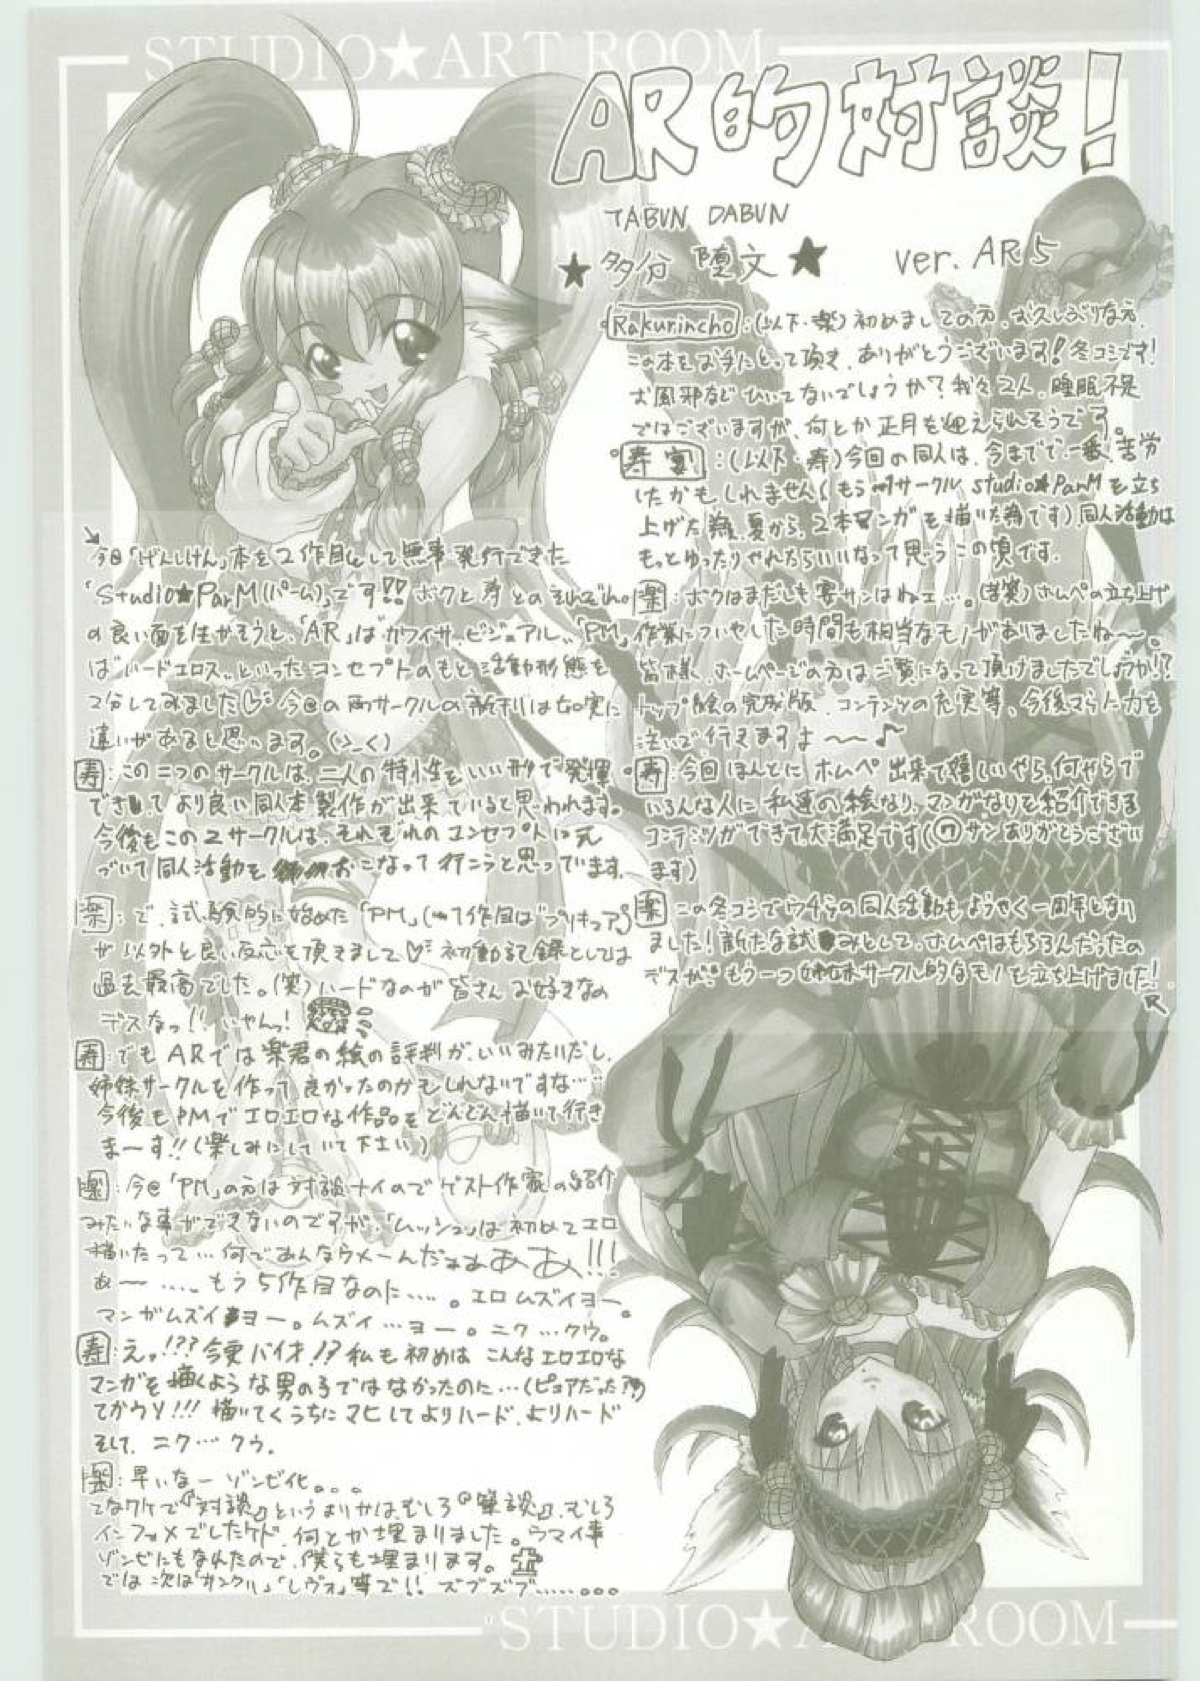 STUDIO★ART ROOM
AR的対談!
TABUN DABUN
★多分 堕文★ ver. AR5
Rakurincho:(以下・楽)初めましての方、お久しぶりな方、
この本をお手にとって頂き、ありがとうございます!冬コミです!
お風邪などひいてないでしょうか?我々2人、睡眠不足
ではございますが、何とか正月を迎えられそうです。
寿宴:(以下・寿)今回の同人は、今までで一番、苦労
したかもしれません(もう一つサークル studio★ParMを立ち
上げた為、夏から、2本マンガを描いた為です)同人活動は
もっとゆったりやれたらいいなって思うこの頃です。
楽:ボクはまだしも寿サンはねェ…。(苦笑)ホムペの立ち上げ
作業についやした時間も相当なモノがありましたね〜〜。
皆様、ホームページの方はご覧になって頂けましたでしょうか!?
トップ絵の完成版、コンテンツの充実等、今後さらに力を
注いで行きますよ〜〜♪
寿:今回ほんとにホムペ出来て嬉しいやら、何やらで
いろんな人に私達の絵なり、マンガなりを紹介できる
コンテンツができて大満足です(ワサンありがとうござい
ます)
楽:この冬コミでウチらの同人活動もようやく一周年とない
ました!新たな試みとして、ホムペはもちろんだったの
デスが、もう一つ姉妹サークル的なモノを立ち上げました!
今回「げんしけん」本を2作目として無事発行できた
「Studio★ParM(パーム)」です!!ボクと寿とのそれぞれの
の良い面を生かそうと、「AR」は"カワイサ、ビジュアル"、「PM」
は"ハードエロス"、といったコンセプトのもと活動形態を
2分してみました♡今回の両サークルの新刊は如実に
違いがあると思います。(>_<)
寿:この二つのサークルは、二人の特性をいい形で発揮
できして、より良い同人本製作が出来ていると思われます。
今後もこの2サークルは、それぞれのコンセプトに元
づいて同人活動をおこなって行こうと思っています。
楽:で、試験的に始めた「PM」(1作目は"プリキュア")
が以外と良い反応を頂きまして♡初動記録としては
過去最高でした。(笑)ハードなのが皆さんお好きなの
デスなっ!!いやんっ!
寿:でもARでは楽君の絵の評判が、いいみたいだし、
姉妹サークルを作って良かったのかもしれないですな…
今後もPMでエロエロな作品をどんどん描いて行き
まーす!!(楽しみにしていて下さい)
楽:今回「PM」の方は対談ナイのでゲスト作家の紹介
みたいな事ができないのですが、「ムッシュ」は初めてエロ
描いたって…何であんなウメーんだぁぁああ!!!
あ〜〜……もう5作目なのに……。エロムズイヨー。
マンガムズイヨー。ムズイ…ヨー。ニク…クウ。
寿:えっ!??今更バイオ!?私も初めはこんなエロエロな
マンガを描くような男の子ではなかったのに…(ピュアだった??)
てかウソ!!!描いてくうちにマヒしてよりハード、よりハード
そして、ニク…クウ。
楽:早いなーゾンビ化。。。
てなワケで『対談』というよりかはむしろ『筆談』、むしろ
インフォメでしたケド、何とか埋まりました。ウマイ事
ゾンビにもなれたので、僕らも埋まります。
では次は「サンクリ」「レヴォ」等で!!ズブズブ……。。。
STUDIO★ART ROOM